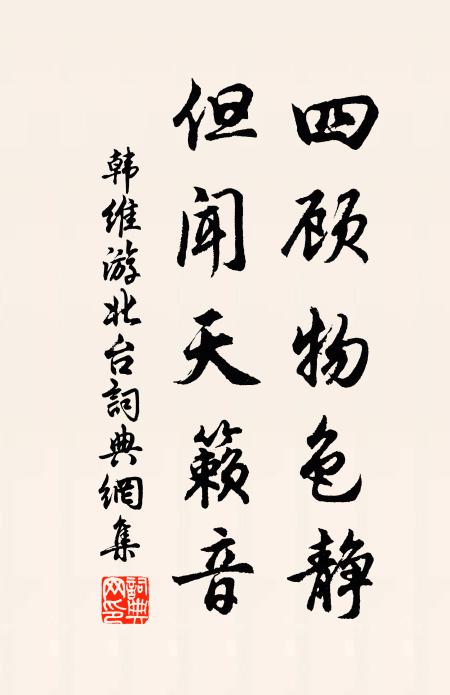 四顾物色静
但闻天籁音
韩维游北台詞典網集
詞典网印